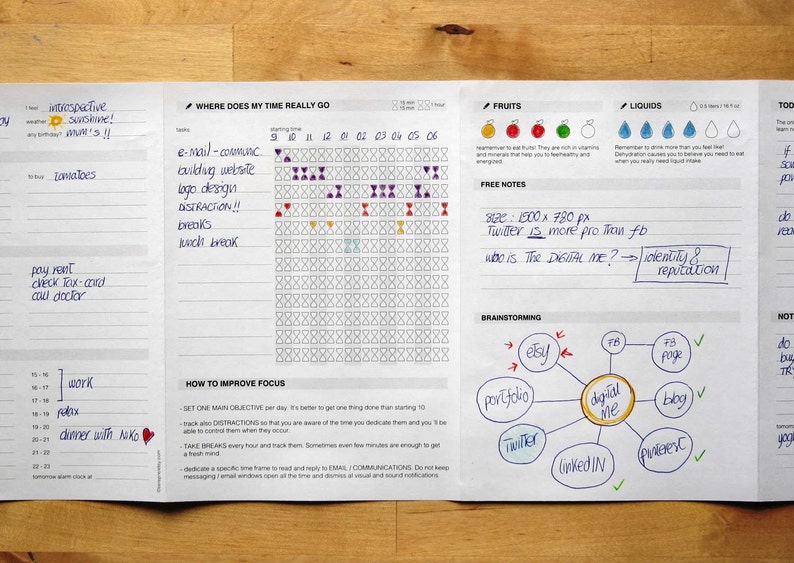 I feel introspective
weather sunshine!
any birthday? mum's!!
to buy tomatoes
pay rent
check tax-card
call doctor
15 - 16
16 - 17
work
17 - 18
18 - 19
relax
19 - 20
20 - 21
dinner with Niko
21 - 22
22 - 23
tomorrow alarm clock at
WHERE DOES MY TIME REALLY GO
15 min
15 min
1 hour
tasks
starting time
9 10 11 12 01 02 03 04 05 06
e-mail-communic.
building website
logo design
DISTRACTION!!
breaks
lunch break
HOW TO IMPROVE FOCUS
- SET ONE MAIN OBJECTIVE per day. It's better to get one thing done than starting 10.
- track also DISTRACTIONS so that you are aware of the time you dedicated them and you 'll be
able to control them when they occur.
- TAKE BREAKS every hour and track them. Sometimes even few minutes are enough to get
a fresh mind.
- dedicate a specific time frame to read and reply to EMAIL / COMMUNICATIONS. Do not keep
messaging / email windows open all the time and dismiss all visual and sound notifications
FRUITS
reamemver to eat fruits! They are rich in vitamins
and minerals that help you to feelhealthy and
energized.
LIQUIDS
0.5 liters / 16 fl oz
Remember to drink more than you feel like!
Dehydration causes you to believe you need to eat
when you really need liquid intake.
FREE NOTES
size: 1500 x 780 px
Twitter is more pro than fb
who is the DIGITAL ME? → identity &
reputation
BRAINSTORMING
etsy
FB
FB
page
portfolio
digital
me
blog
Twitter
linkedIN
pinterest
TOD
The o
learn
if
do
rea
NOT
do
buy
TRY
tomo